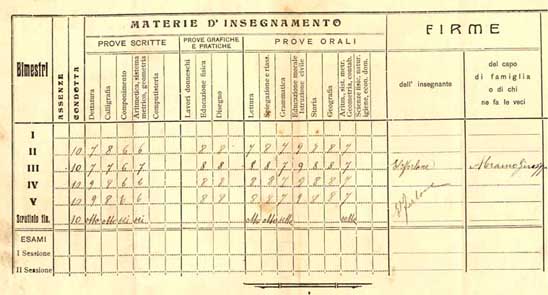 MATERIE D'INSEGNAMENTO
FIRME
Bimestri
ASSENZE
CONDOTTA
PROVE SCRITTE
PROVE GRAFICHE E PRATICHE
PROVE ORALI
Dettatura
Calligrafia
Componimento
Aritmetica, sistema metrico, geometria
Computisteria
Lavori donneschi
Educazione fisica
Disegno
Lettura
Spiegazione e riass.
Grammatica
Educazione morale Istruzione civile
Storia
Geografia
Aritm., sist. metr. Geometria, contab.
Scienze fisic. natur. igiene, econ. dom.
dell' insegnante
del capo
di famiglia
o di chi
ne fa le veci
I
II 10 7 8 6 6 8 8 7 8 8 7 9 8 8 7
III 10 7 7 6 7 8 8 8 8 7 9 8 8 7
IV 10 9 8 6 6 8 8 8 8 7 8 8 8 7
V 10 9 8 8 6 8 8 8 8 7 9 8 8 7
Scrutinio fin. 10 otto otto sei sei otto otto sette sette
ESAMI
I Sessione
II Sessione